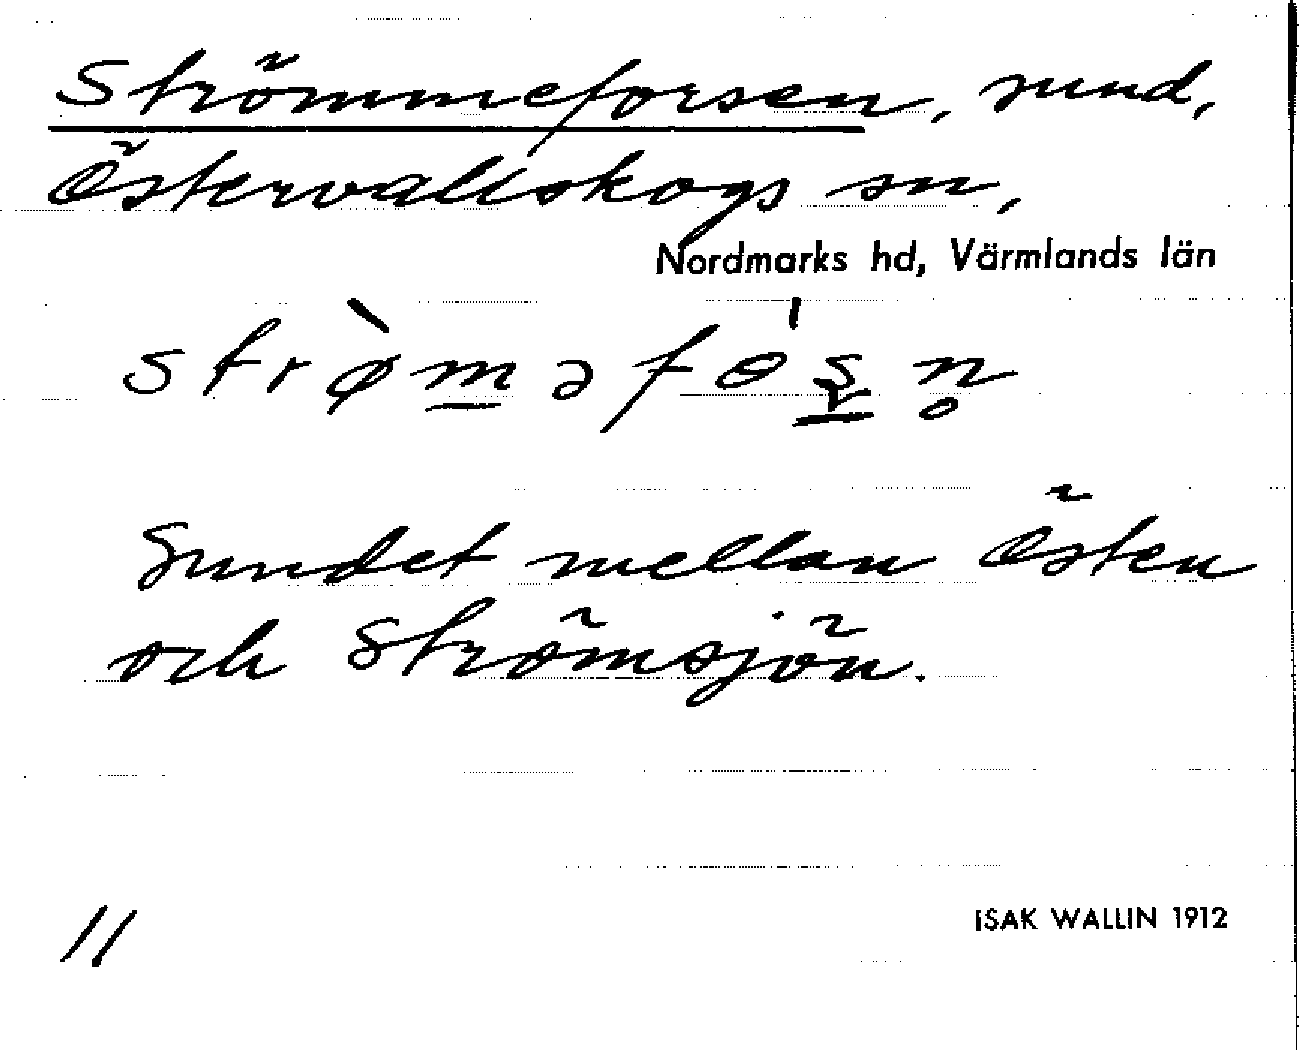 Strömmeforsen, sund,
Östervallskogs sn,
Nordmarks hd, Värmlands län
strø̀m̲əfɵ'ʂ̲n̥
Sundet mellan Östen
och Strömsjön.
11
ISAK WALLIN 1912